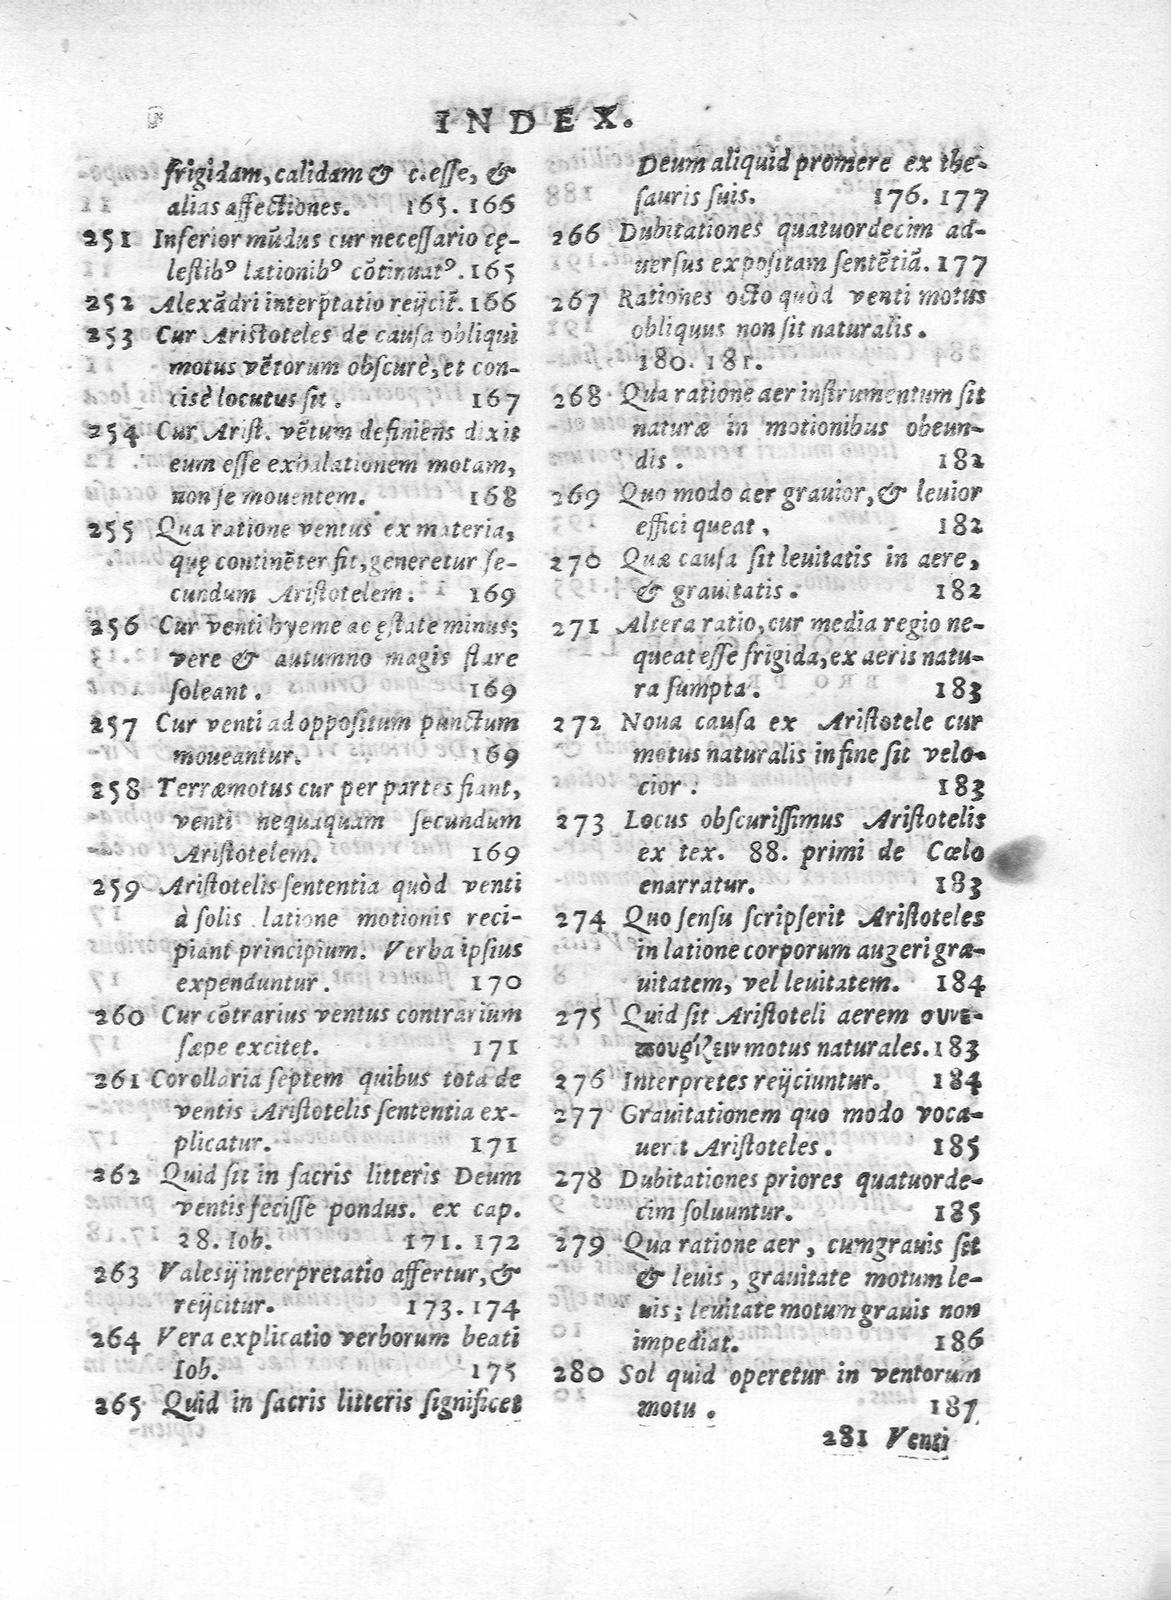 INDEX.
frigidam, calidam & c. esse, &
alias affectiones. 165. 166
251 Inferior mũdus cur necessario cę-
lestibꝰ lationibꝰ cõtinuatꝰ. 165
252 Alexãdri interp̃tatio reijcit̃. 166
253 Cur Aristoteles de causa obliqui
motus vẽtorum obscurè, et con-
cisè locutus sit. 167
254 Cur Arist. vẽtum definiens dixit
eum esse exhalationem motam,
non se mouentem. 168
255 Qua ratione ventus ex materia,
quę continẽter fit, generetur se-
cundum Aristotelem. 169
256 Cur venti hyeme ac ęstate minus;
vere & autumno magis flare
soleant. 169
257 Cur venti ad oppositum punctum
moueantur. 169
258 Terræmotus cur per partes fiant,
venti nequaquam secundum
Aristotelem. 169
259 Aristotelis sententia quòd venti
à solis latione motionis reci-
piant principium. Verba ipsius
expenduntur. 170
260 Cur cõtrarius ventus contrarium
sæpe excitet. 171
261 Corollaria septem quibus tota de
ventis Aristotelis sententia ex-
plicatur. 171
262 Quid sit in sacris litteris Deum
ventis fecisse pondus. ex cap.
28. Iob. 171. 172
263 Valesij interpretatio affertur, &
reijcitur. 173. 174
264 Vera explicatio verborum beati
Iob. 175
265 Quid in sacris litteris significet
Deum aliquid promere ex the-
sauris suis. 176. 177
266 Dubitationes quatuordecim ad-
uersus expositam sentẽtiã. 177
267 Rationes octo quòd venti motus
obliquus non sit naturalis.
180. 181.
268 Qua ratione aer instrumentum sit
naturæ in motionibus obeun-
dis. 182
269 Quo modo aer grauior, & leuior
effici queat. 182
270 Quæ causa sit leuitatis in aere,
& grauitatis. 182
271 Altera ratio, cur media regio ne-
queat esse frigida, ex aeris natu-
ra sumpta. 183
272 Noua causa ex Aristotele cur
motus naturalis in fine sit velo-
cior. 183
273 Locus obscurissimus Aristotelis
ex tex. 88. primi de Cœlo
enarratur. 183
274 Quo sensu scripserit Aristoteles
in latione corporum augeri gra-
uitatem, vel leuitatem. 184
275 Quid sit Aristoteli aerem συνε-
πουρίζειν motus naturales. 183
276 Interpretes reijciuntur. 184
277 Grauitationem quo modo voca-
uerit Aristoteles. 185
278 Dubitationes priores quatuorde-
cim soluuntur. 185
279 Qua ratione aer, cum grauis sit
& leuis, grauitate motum le-
uis; leuitate motum grauis non
impediat. 186
280 Sol quid operetur in ventorum
motu. 187
281 Venti